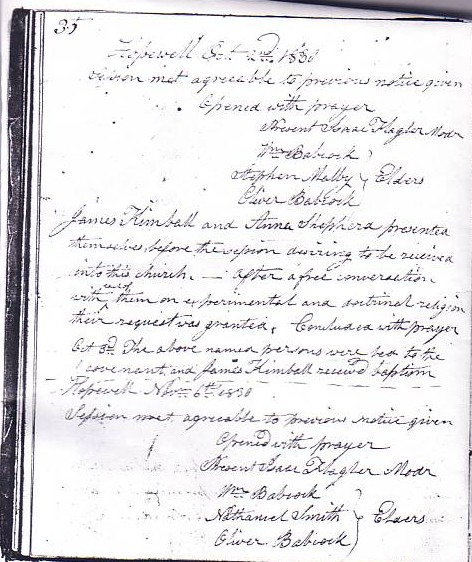 35
Hopewell Oct 2nd 1830
Session met agreeable to previous notice given
Opened with prayer
Present Isaac Flagler Modr
Wm Babcock
Stephen Malby } Elders
Oliver Babcock
James Kimball and Anna Shepherd presented
themselves before the session desiring to be received
into this church. — After a free conversation
with them on experimental and doctrinal religion
their request was granted. Concluded with prayer
Oct 3d The above named persons were led to the
covenant, and James Kimball received baptism
Hopewell Novm 6th 1830
Session met agreeable to previous notice given
Opened with prayer
Present Isaac Flagler Modr
Wm Babcock
Nathaniel Smith } Elders
Oliver Babcock